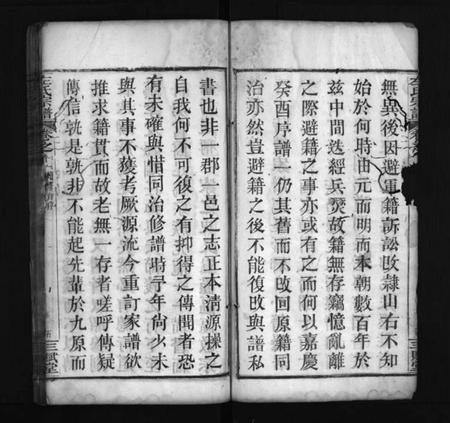 無異後因避軍籍訴訟改隸山右不知
始於何時由元而明而本朝數百年於
茲中間迭經兵燹故籍無存竊憶亂離
之際避籍之事亦或有之而何以嘉慶
癸酉序譜一仍其舊而不改回原籍同
治亦然豈避籍之後不能復改與譜私
書也非一郡一邑之志正本清源操之
自我何不可復之有抑得之傳聞者恐
有未確與惜同治修譜時予年尚少未
與其事不獲考厥源流今重訂家譜欲
推求籍貫而故老無一存者嗟呼傳疑
傳信孰是孰非不能起先輩於九原而
氏宗譜
三槐堂